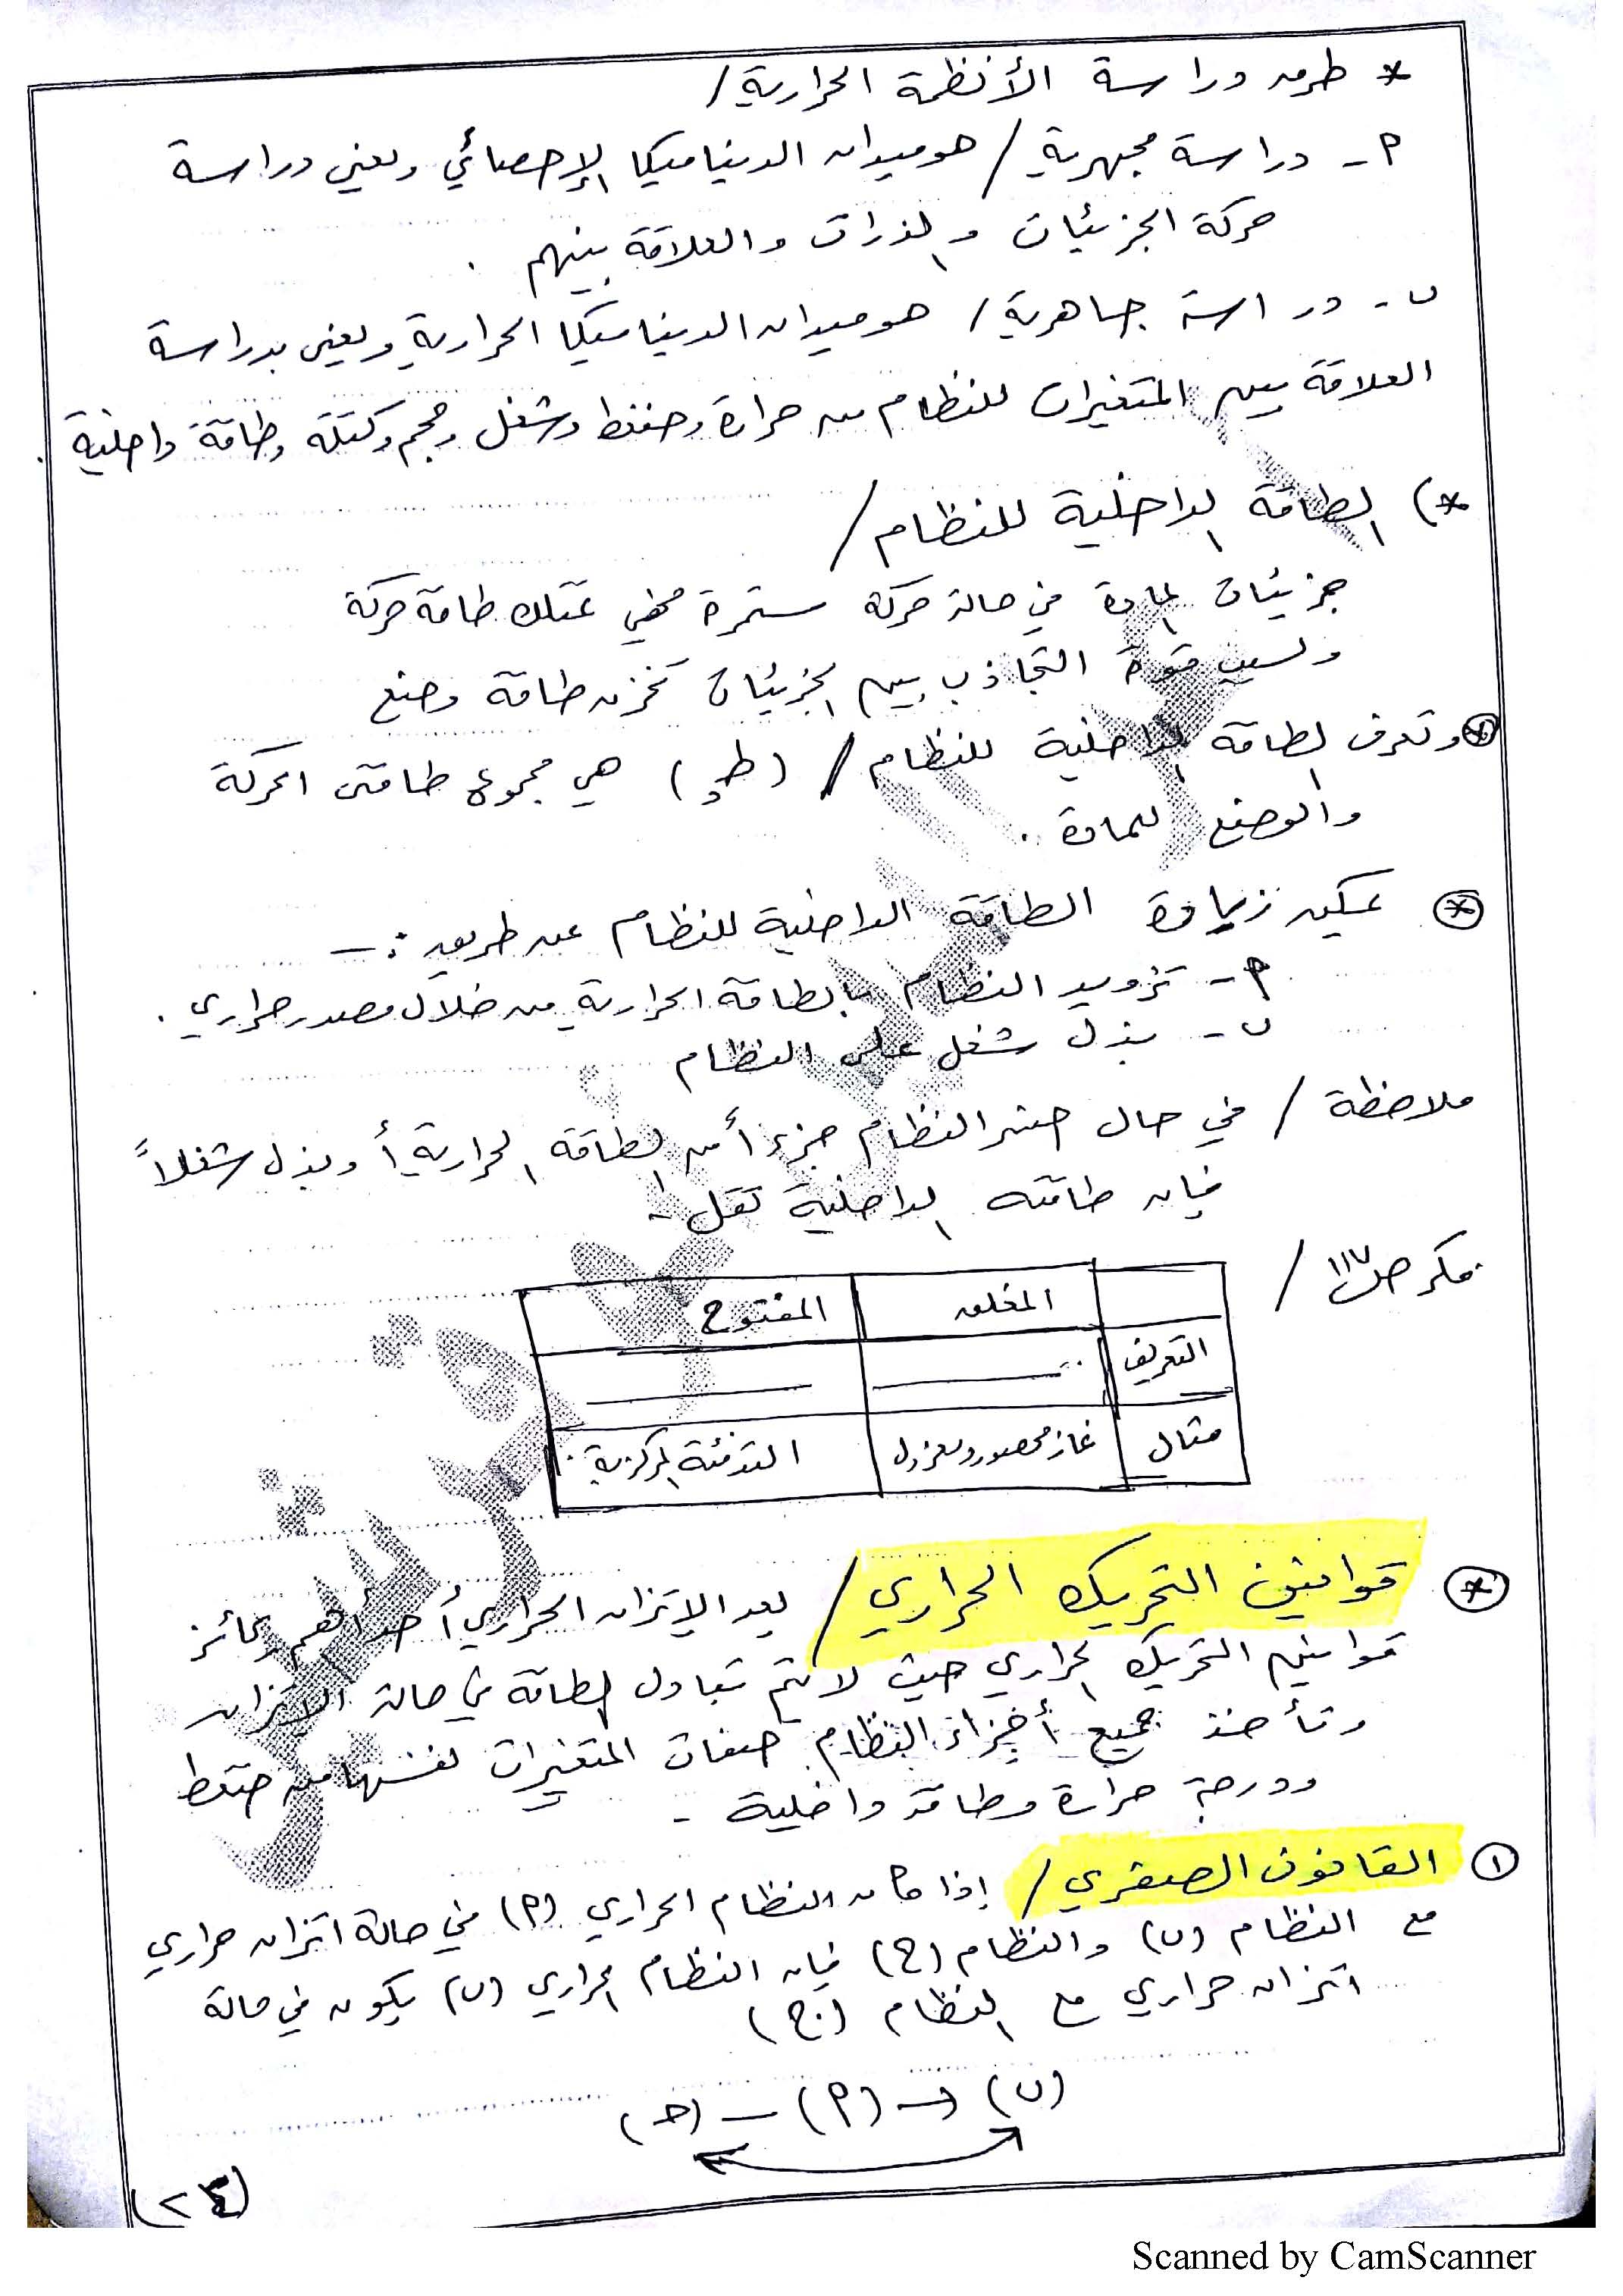 * طرق دراسة الأنظمة الحرارية /
أ - دراسة مجهرية / هو ميدان الديناميكا الإحصائي ويعني دراسة
حركة الجزيئات والذرات والعلاقة بينهم .
ب - دراسة جاهرية / هو ميدان الديناميكا الحرارية ويعني بدراسة
العلاقة بين المتغيرات للنظام من حرارة وضغط وشغل وحجم وكتلة وطاقة داخلية .
*) الطاقة الداخلية للنظام /
جزيئات المادة في حالة حركة مستمرة فهي تمتلك طاقة حركة
وبسبب قوة التجاذب بين الجزيئات تخزن طاقة وضع
* وتعرف الطاقة الداخلية للنظام / (طد) هي مجموع طاقتي الحركة
والوضع للمادة .
* يمكن زيادة الطاقة الداخلية للنظام عن طريق :-
أ - تزويد النظام بالطاقة الحرارية من خلال مصدر حراري .
ب - بذل شغل على النظام
ملاحظة / في حال خسر النظام جزءاً من الطاقة الحرارية أو بذل شغلاً
فإن طاقته الداخلية تقل .
فكر ص ١١٧ /
المغلق المفتوح
التعريف
مثال غاز محصور ومعزول التدفئة المركزية
* قوانين التحريك الحراري / يعد الإتزان الحراري أحد أهم ركائز
قوانين التحريك الحراري حيث لا يتم تبادل الطاقة في حالة الإتزان
وتأخذ جميع أجزاء النظام صفات المتغيرات نفسها من ضغط
ودرجة حرارة وطاقة داخلية .
١ القانون الصفري / إذا كان النظام الحراري (أ) في حالة اتزان حراري
مع النظام (ب) والنظام (ج) فإن النظام الحراري (ب) يكون في حالة
اتزان حراري مع النظام (ج)
(ب) → (أ) – (ج)
(٢٤)
Scanned by CamScanner